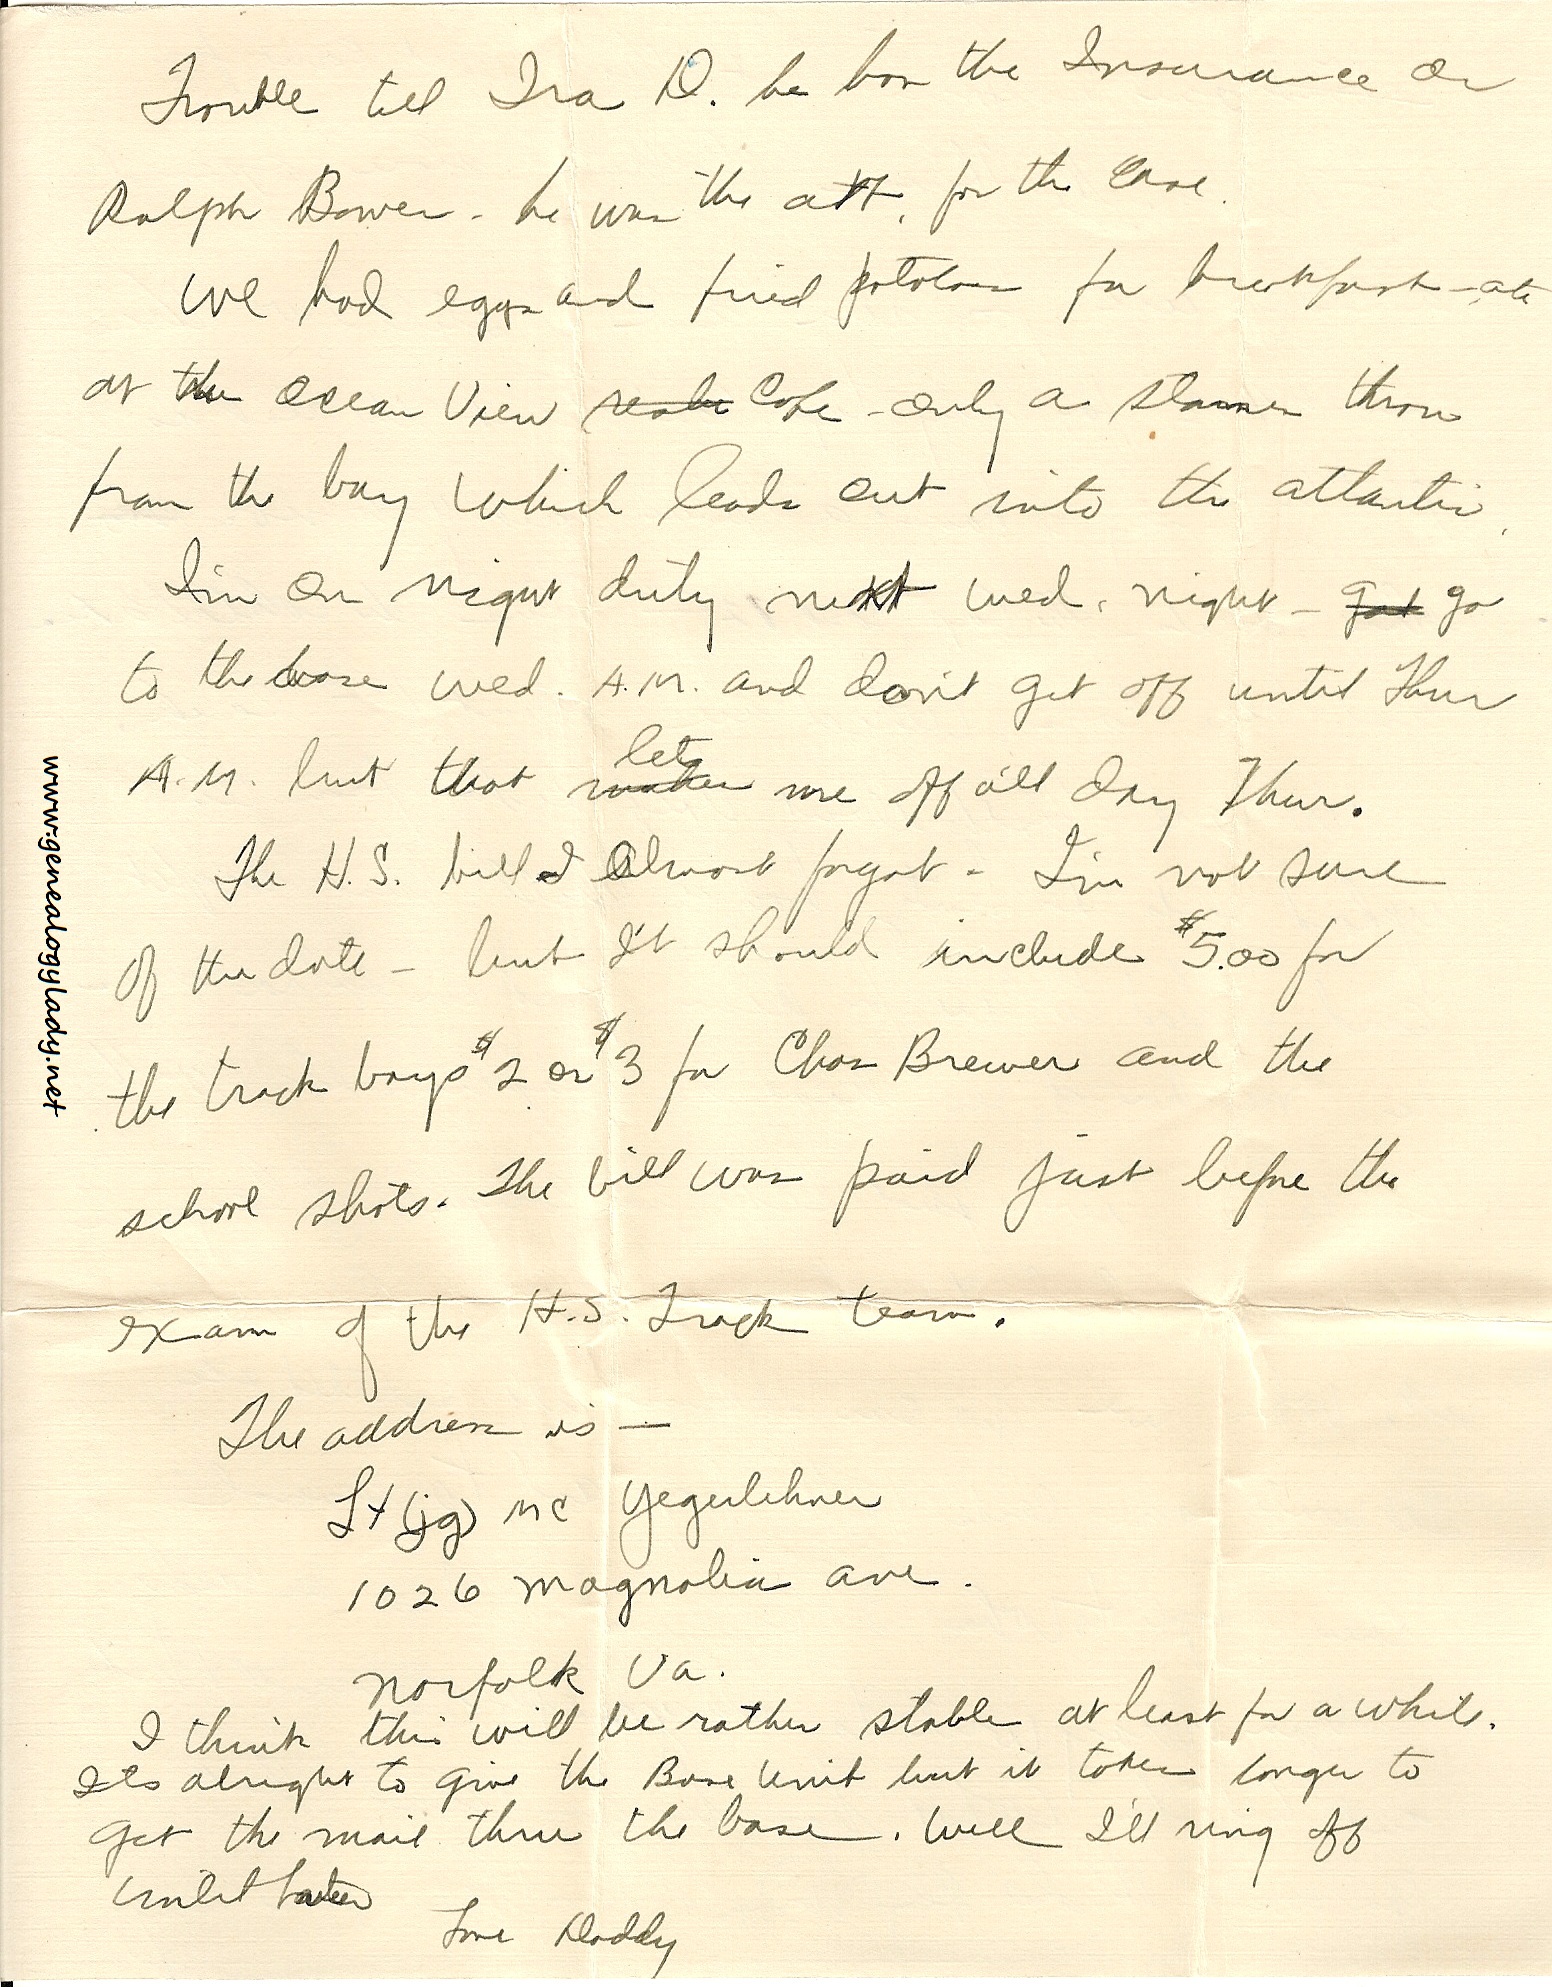 Trouble tell Ira D. he has the Insurance on
Ralph Bower - he was the att. for the case.
We had eggs and fried potatoes for breakfast - ate
at the Ocean View Cafe - only a stones throw
from the bay which leads out into the atlantic.
I'm on night duty next wed. night - got go
to the base wed. A.M. and don't get off until Thur
A.M. but that makes lets me off all day Thur.
The H.S. bill I almost forgot - I'm not sure
of the date - but It should include $5.00 for
the track boys $2 or $3 for Chas Brewer and the
school shots. The bill was paid just before the
exam of the H.S. Track team.
The address is —
Lt (jg) MC Yegerlehner
1026 Magnolia ave.
Norfolk Va.
I think this will be rather stable at least for a while.
Its alright to give the Base Unit but it takes longer to
get the mail thru the base. Well I'll ring off
until later
Love Daddy
www.genealogylady.net